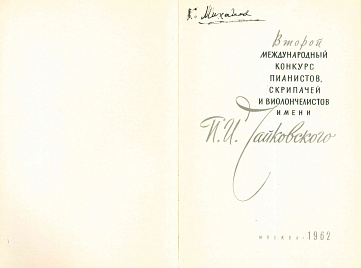 К. Михайлов
Второй
МЕЖДУНАРОДНЫЙ
КОНКУРС
ПИАНИСТОВ,
СКРИПАЧЕЙ
И ВИОЛОНЧЕЛИСТОВ
ИМЕНИ
П. И. Чайковского
МОСКВА · 1962